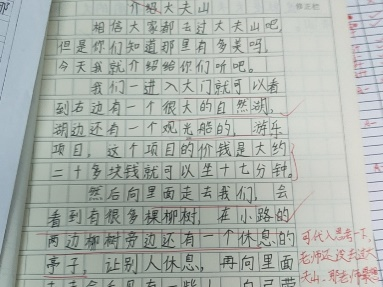 介绍大夫山
相信大家都去过大夫山吧,
但是你们知道那里有多美吗,
今天我就介绍给你们听吧。
我们一进入大门就可以看
到右边有一个很大的自然湖,
湖边还有一个观光船的,游乐
项目,这个项目的价钱是大约
二十多块钱就可以坐十七分钟。
然后向里面走去我们,会
看到有很多棵柳树,在小路的
两边柳树旁边还有一个休息的
亭子,让别人休息,再向里面
可代入思考一下,
老师还没去过大
夫山,那老师